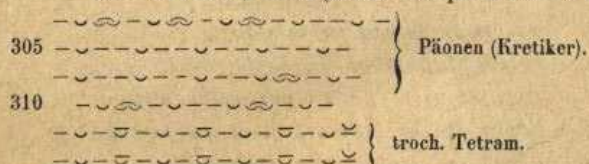 305 Päonen (Kretiker).
310
troch. Tetram.